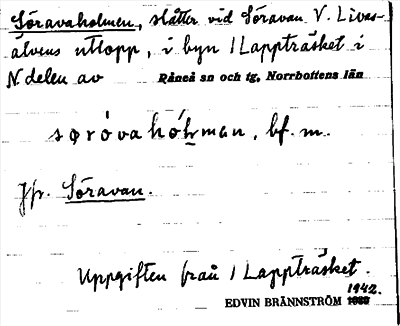 Söravaholmen, slåtter vid Söravan V. Livas-
älvens utlopp, i byn Lappträsket i
N delen av Råneå sn och tg, Norrbottens län
søróvahóhman, bf. m.
Jfr. Söravan.
Uppgiften från Lappträsket.
1942.
EDVIN BRÄNNSTRÖM